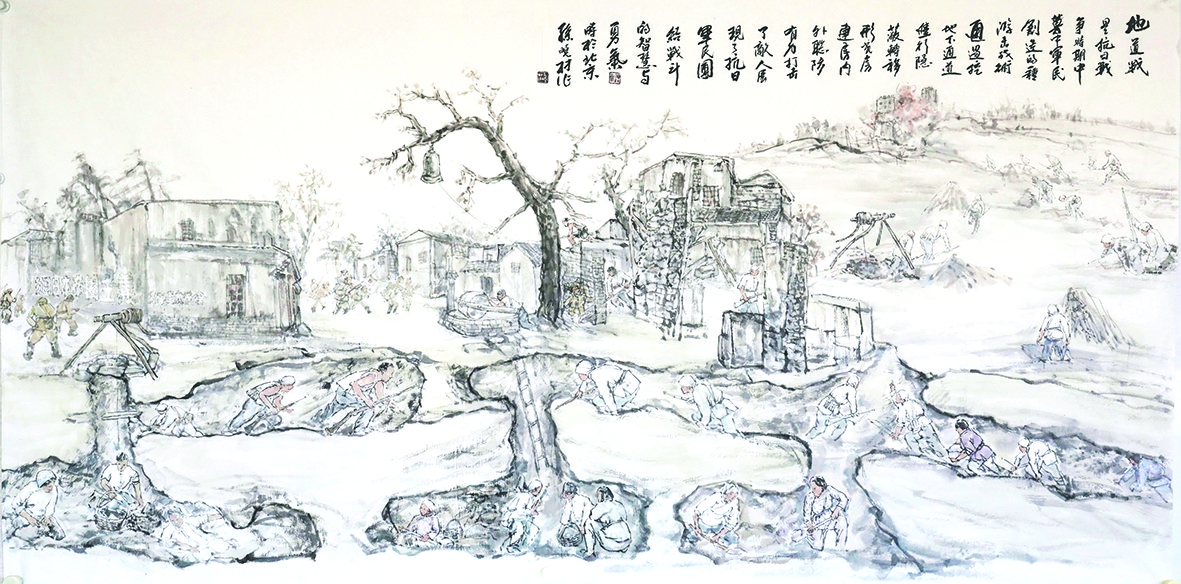 地道战
是抗日战
争时期中
军民
创造的种
游击战术
通过挖
地下通道
进行隐
蔽转移
形成房
连房内
外联防
有力打击
了敌人展
现了抗日
军民团
结战斗
的智慧与
勇气
时於北京
作